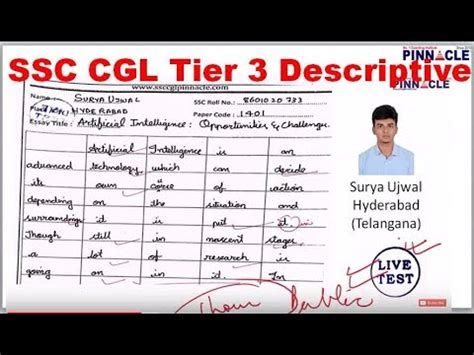 PINNACLE
SSC CGL Tier 3 Descriptive
PINNACLE
www.ssccglpinnacle.com
Name: SURYA UJWAL SSC Roll No.: 8601020733
HYDERABAD Paper Code: 1401
Essay Title: Artificial Intelligence: Opportunities & Challenges.
Artificial Intelligence is an
advanced technology which can decide
its own course of action
depending on the situation and
surroundings it is put
Though still in nascent stages
a lot of research is
going on in it. In
Surya Ujwal
Hyderabad
(Telangana)
LIVE
TEST